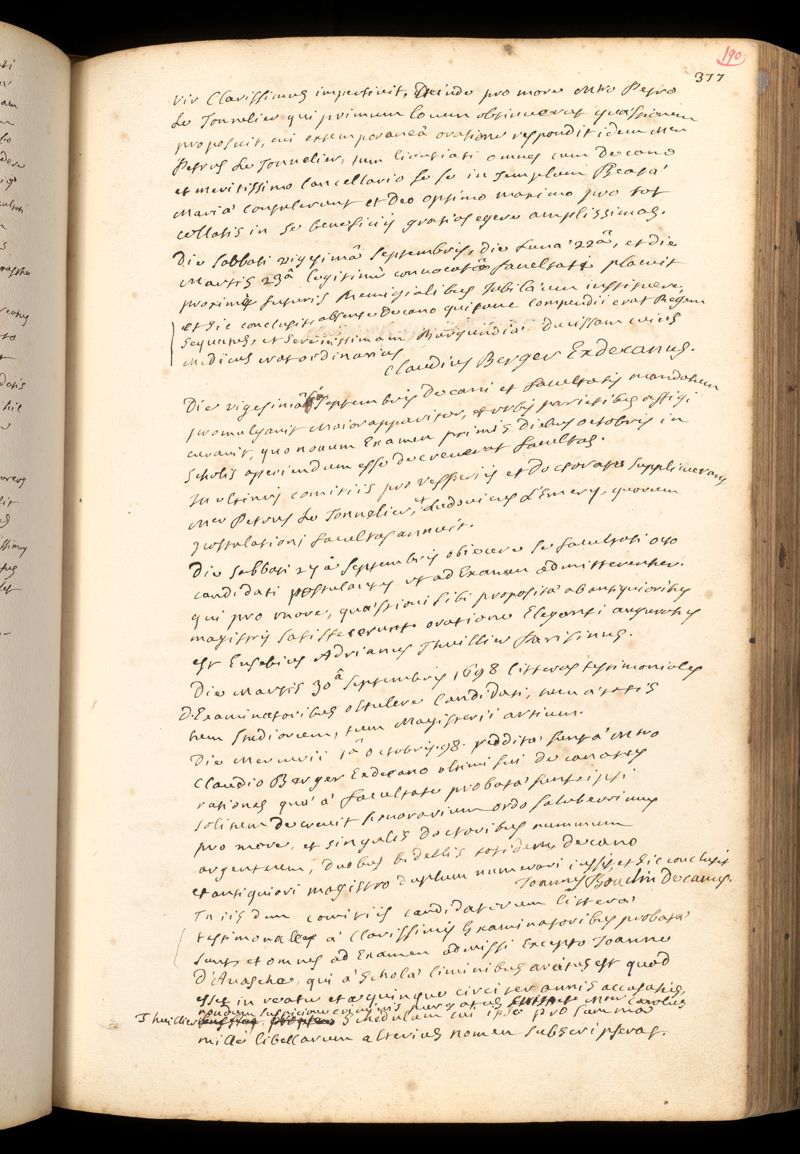 190
377
vir Clarissimus impertivit, Deinde pro more Mro Petro
Le Tonnelier qui primum locum obtinuerat quæstionem
proposuit, cui extemporaneâ oratione respondit idem Mer
Petrus Le Tonnelier, tum licentiati omnes cum Decano
et meritissimo Cancellario se se in Templum Beatæ
Mariæ contulerunt et Deo optimo maximo pro tot
collatis in se beneficiis gratias egere amplissimas.
Die Sabbati vigesimâ Septembris, die Lunæ 22â, et die
Martis 23â legitimè convocatæ facultati placuit
proximis futuris Remigialibus Jubilæum instituere,
et sic conclusit, absente Decano qui tunc Compendii erat Regem
sequutus, et Serenissimam Burgundiæ Ducissam cuius
medicus erat ordinarius
Claudius Berger Exdecanus.
Die vigesimâ Septembris Decani et facultatis mandatum
promulgavit Maior apparitor, et urbis parietibus affigi
curavit, quo novum Examen primis diebus octobris in
scholis aperiendum esse decreverat facultas.
In ultimis comitiis pro vesperiis et Doctoratu supplicuerunt
Mer Petrus Le Tonnelier, et Ludovicus L'Emery, quorum
postulationi facultas annuit.
Die Sabbati 27â Septembris obiecere se facultati octo
candidati postulantes ut ad Examen admitterentur.
qui pro more, quæstioni sibi propositæ ab antiquioribus
magistris satisfecerunt oratione Eleganti
est Eusebius Adrianus Thuillier Parisinus.
Die Martis 30â Septembris 1698 litteras testimoniales
Examinatoribus obtulere Candidati, tum ætatis
tum studiorum, tum Magisterii artium.
Die Mercurii 1â octobris 98 redditæ sunt a Mro
Claudio Berger Exdecano ultimi sui decanatus
rationes quæ a facultate probatæ sunt, ipsi
solitum decrevit honorarium ordo saluberrimus
pro more, et singulis doctoribus nummum
argenteum, duobus bidellis totidem, decano
et antiquiori magistro duplum numerari iussit, et sic conclusit
Joannes Boudin Decanus.
In iisdem comitiis candidatorum litteræ
testimoniales a Clarissimis Examinatoribus probatæ
sunt, et omnes ad Examen admissi Excepto Joanne
D'Anasche, qui a Scholæ liminibus arcitus est quod
esset in reatu et a quinque circiter annis accusatus,
nondum suspicione criminis purgatus Mer Carolus
Thuillier schedulam cui ipse pro summa
mille libellarum alterius nomen subscripserat.